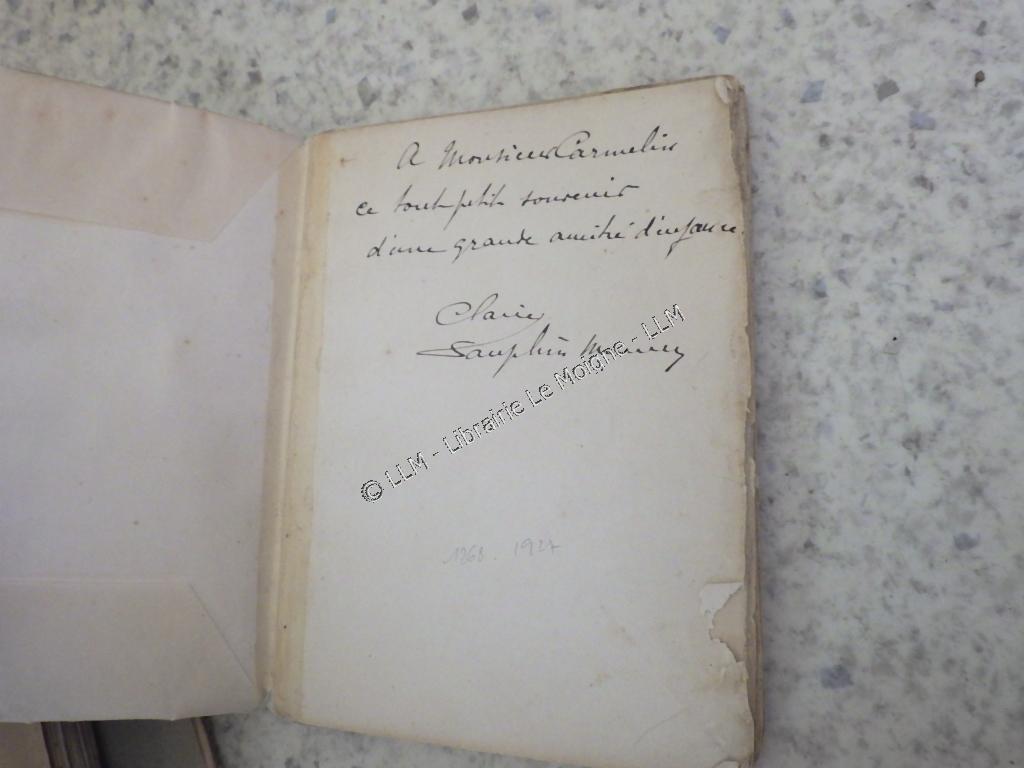 A Monsieur Carmelin
ce tout petit souvenir
d'une grande amitié d'enfance.
Claire
Dauphin Meunier
© LLM - Librairie Le Moigne - LLM
1868. 1927